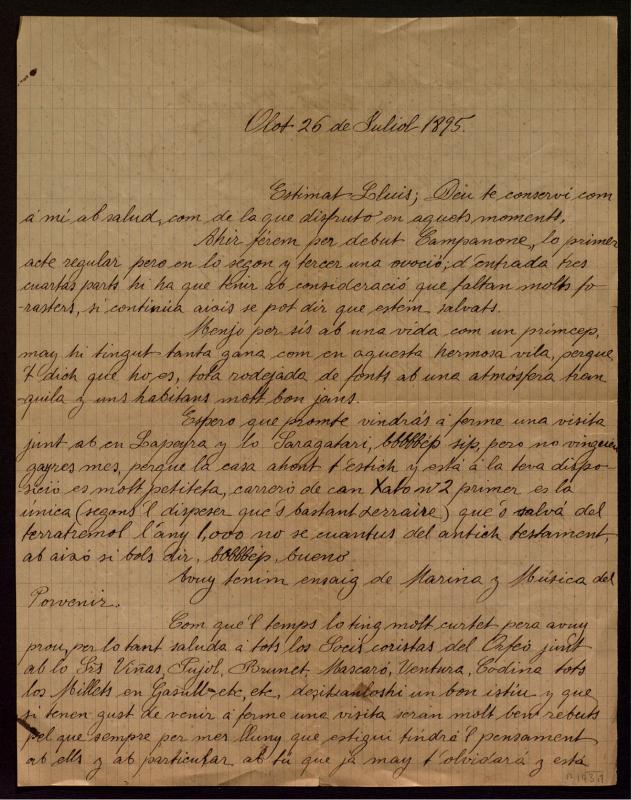 Olot 26 de Juliol 1895.
Estimat Lluis; Déu te conservi com
á mí ab salud, com de la que disfruto en aquets moments.
Ahir férem per debut Campanone, lo primer
acte regular pero en lo segon y tercer una ovoció; d'entrada tres
cuartas parts hi ha que tenir ab consideració que faltan molts fo-
rasters, si continúa aixis se pot dir que estém salvats.
Menjo per sis ab una vida com un primcep,
may hi tingut tanta gana com en aquesta hermosa vila, perque
t dich que ho es, tota rodejada de fonts ab una atmósfera tran
quila y uns habitans molt bon jans.
Espero que promte vindrás á ferme una visita
junt ab en Lapeyra y lo Saragatari, bbbbbép sip, pero no vinguen
gayres mes, perque la casa ahont t'estich y está á la teva dispo-
sició es molt petiteta, carreró de can Xato nº 2 primer es la
única (segons l' dispeser que's bastant) que's salvá del
terratremol l'any 1,000 no se cuantus del antich testament,
ab aixó si bols dir, bbbbbép, bueno
Avuy tenim ensaig de Marina y Música del
Porvenir.
Com qué'l temps lo ting molt curtet pera avuy
prou, per lo tant saluda á tots los Socis coristas del Orfeó junt
ab lo Srs Viñas, Pujol, Brunet, Mascaró, Ventura, Codina tots
los Millets en Gasull etc, etc, desitsantloshi un bon istiu y que
si tenen gust de venir á ferme una visita serán molt ben rebuts
pel que sempre per mes lluny que estigui tindrá'l pensament
ab ells y ab particular ab tú que já may t'olvidará y está